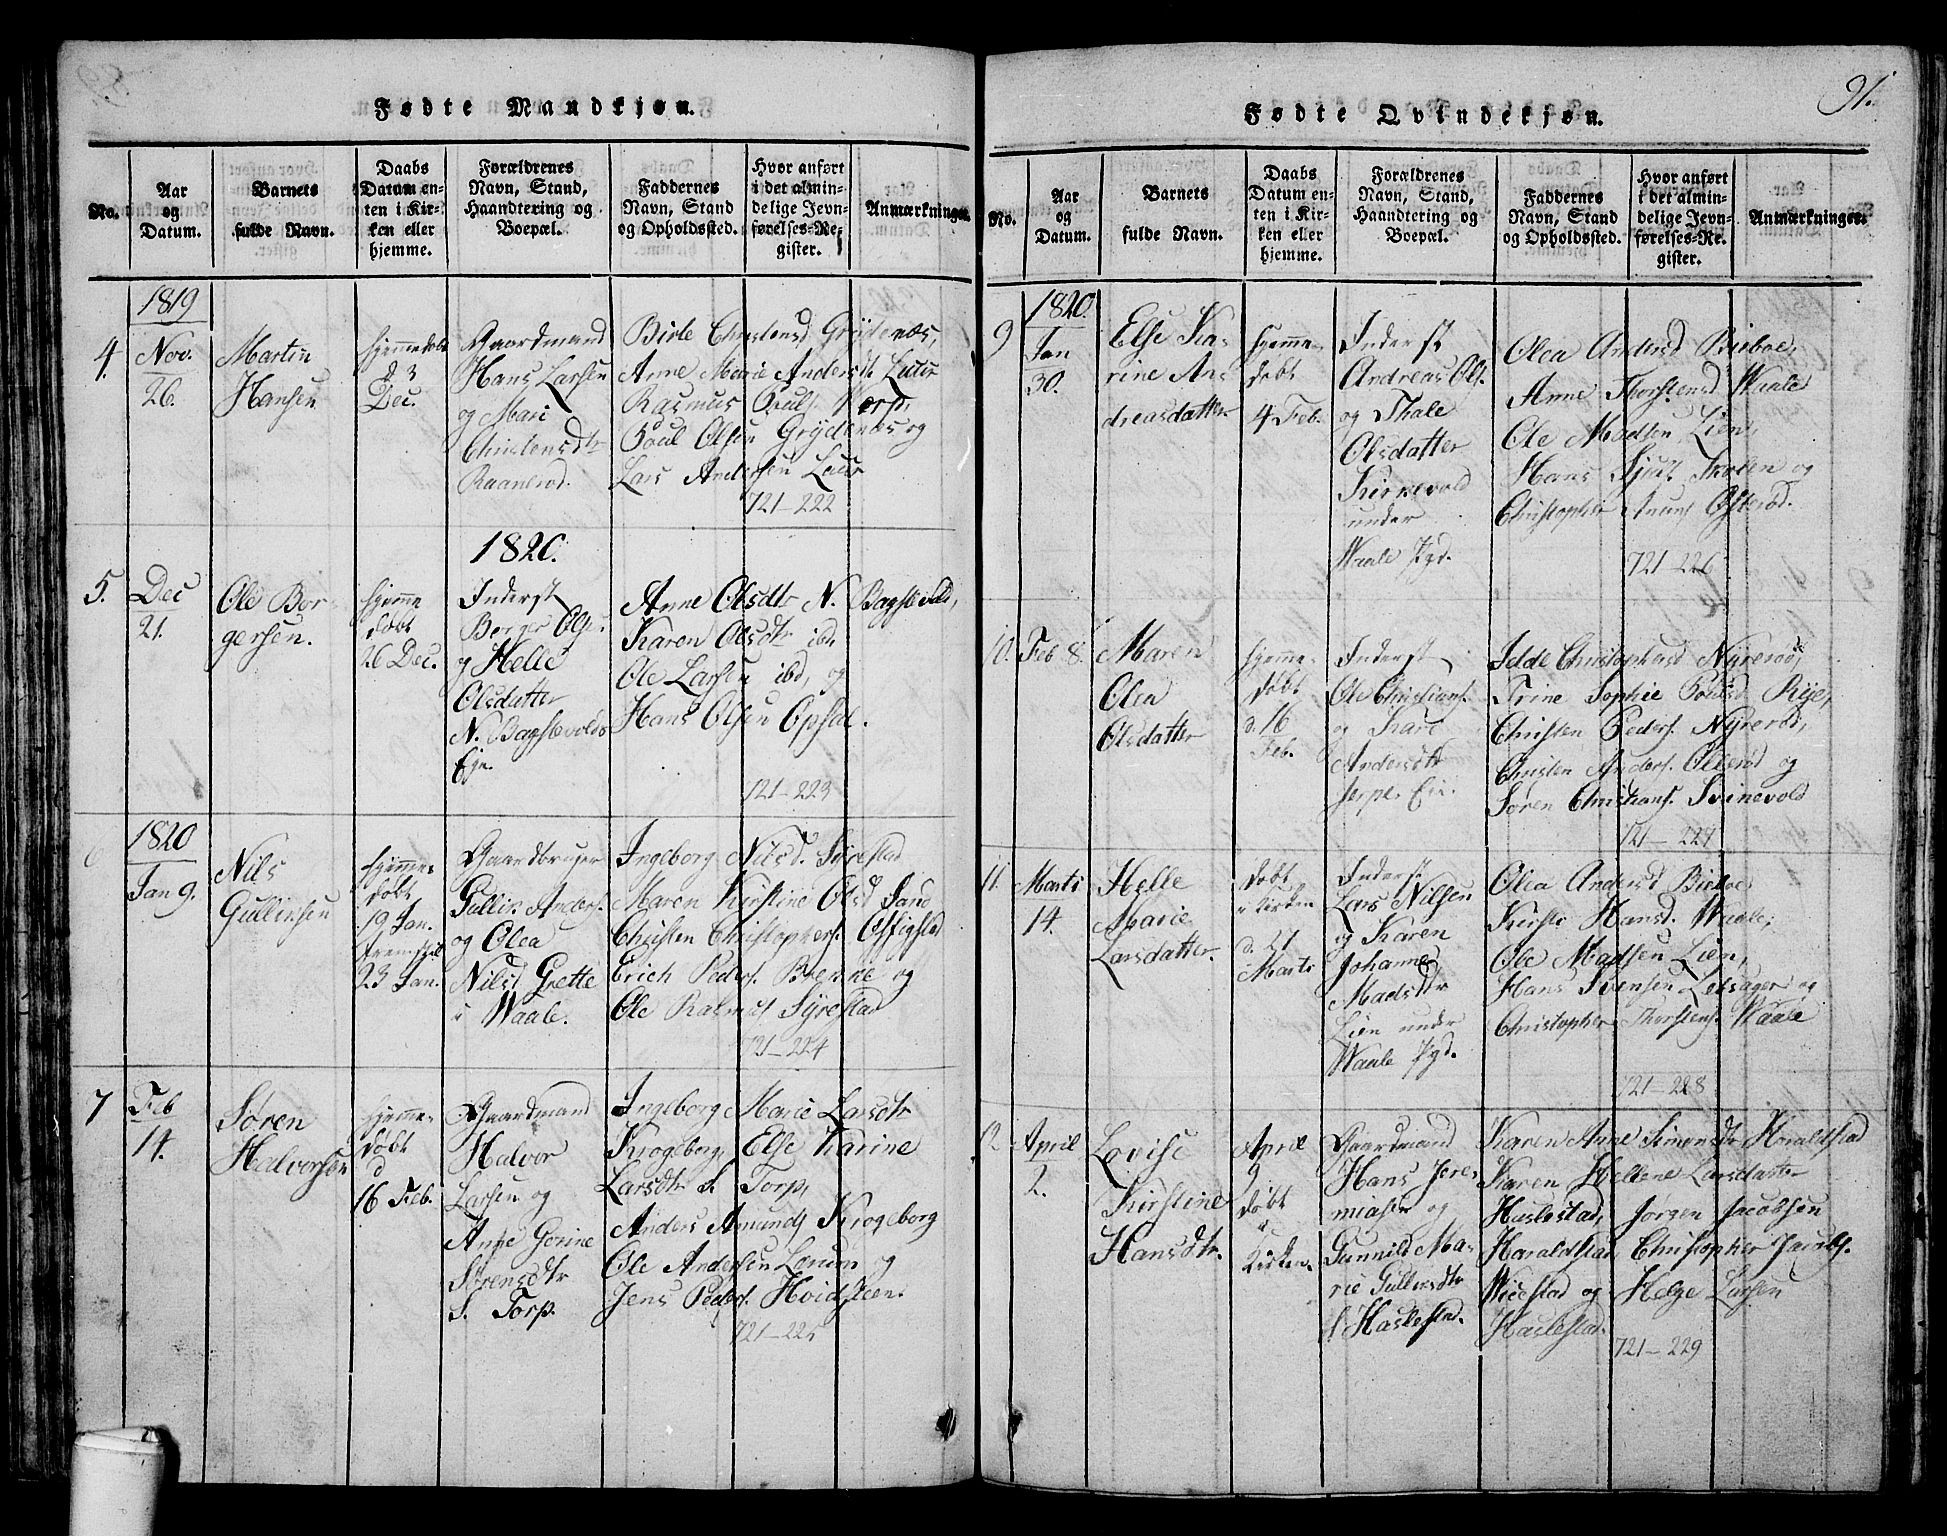 91.
Fødte Mandkjøn.
No.
Aar
og
Datum.
Barnets
fulde Navn.
Daabs
Datum en-
ten i Kir-
ken eller
hjemme.
Forældrenes
Navn, Stand,
Haandtering og
Boepæl.
Faddernes
Navn, Stand
og Opholdssted.
Hvor anført
i det almin-
delige Jevn-
førelses-Re-
gister.
Anmærkninger.
1819
4.
Nov.
26.
Martin
Hansen
hjemmedøbt
d 3
Dec.
Gaardmand
Hans Larsen
og Mari
Christensdtr
Raanerød.
Birle Christensd Grydenæs,
Anne Marie Andersdt
Rasmus Pouls.
Poul Olsen Grydenæs og
Lars Andersen
721-222
1820.
5.
Dec
21.
Ole Bor-
gersen.
hjemme
døbt
26 Dec.
Inderst
Borger Ols.
og Helle
Olsdatter
N. Bagsevolds
Eje.
Anne Olsdtr N. Bagsevold,
Karen Olsdtr ibd.
Ole Larsen ibd, og
Hans Olsen Opsal.
721-223
1820
Jan 9.
Nils
Gullinsen
hjemme-
døbt
19 Jan.
23 Jan.
Gaardbruger
Gullik Anders.
og Olea
Nilsd Grette
i Waale.
Ingeborg Nilsd. Syrestad
Maren Kirstine Olsd Sand
Christen Christophers.
Erich Peders. Brekke og
Ole Rasmus Syrestad
721-224
7
Feb
14.
Søren
Halvorsen
hjemme-
døbt
d
16 Feb.
Gaardmand
Halvor
Larsen og
Anne Gorine
Sørensdtr
S. Torp.
Ingeborg Marie Larsdtr
Krogeborg, Else Karine
Larsdtr S. Torp,
Anders Amunds Krogeborg
Ole Andersen Lorum og
Jens Peders. Hvidsteen.
721-225
Fødte Qvindekjøn.
No.
Aar
og
Datum.
Barnets
fulde Navn.
Daabs
Datum en-
ten i Kir-
ken eller
hjemme.
Forældrenes
Navn, Stand,
Haandtering og
Boepæl.
Faddernes
Navn, Stand
og Opholdssted.
Hvor anført
i det almin-
delige Jevn-
førelses-Re-
gister.
Anmærkninger.
1820
9
Jan
30.
Else Ka-
rine An-
dreasdatter
hjemme-
døbt
4 Feb.
Inderst
Andreas Ols.
og Thale
Olsdatter
Kirkevold
under
Waale Pgd.
Olea Andersd Bieboe,
Anne Thorstensd Waale
Ole Madsen Lien,
Hans
Christopher
721-226
10.
Feb 8.
Maren
Olea
Olsdatter
hjemme-
døbt
d. 16
Feb.
Inderst
Ole Christians.
og Kari
Andersdtr
Idde Christophersd Nyrerød,
Trine Sophie Poulsd Rije,
Christen Peders. Nyrerød,
Christen Anders. Ollerød og
Søren Christians. Svinevold
721-227
11.
Marts
14.
Helle
Marie
Larsdatter.
Døbt
i Kirken
d. 27
Marts
Inderst
Lars Nilsen
og Karen
Johanne
Madsdtr
Lien under
Waale Pgd.
Olea Andersd Bieboe
Kirsti Hansd. Waale,
Ole Madsen Lien,
Hans Svensen Leksager og
Christopher Thorstens. Waale
721-228
12.
April
2.
Lovise
Kirstine
Hansdtr.
April
9
døbt
i
Kirken.
Gaardmand
Hans Jere-
miasen og
Gunnild Ma-
rie Gullersdtr
Haslestad.
Karen Anne Simonsdtr Horaldstad
Karen Hellene Larsdatter
Haslestad, Jørgen Jacobsen
Haraldstad Christopher Jacobs.
Wicestad og Helge Larsen
Haslestad.
721-229